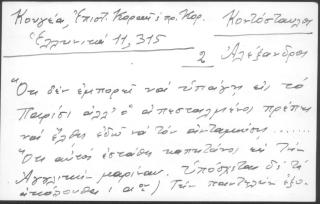 Κουγέα, Ἐπιστ. Κοραῆ πρ. Κορ. Κοντόσταυλος
Ἑλληνικά 11, 315
2 Ἀλέξανδρος
"Ὅτι δὲν ἐμπορεῖ νὰ ὑπάγῃ εἰς τὸ
Παρίσι ἀλλ' ὁ ἀπεσταλμένος πρέπει
νὰ ἔλθῃ ἐδῶ νὰ τὸν ἀνταμώσῃ .......
Ὅτι αὐτὸς ἐστάθη καπιτάνος εἰς τὴν
Ἀγγλιτικὴν μαρίναν. Ὑπόσχεται δὲ τὰ
ἀκόλουθα: αον) Τὴν παντελῆ ἐξο-